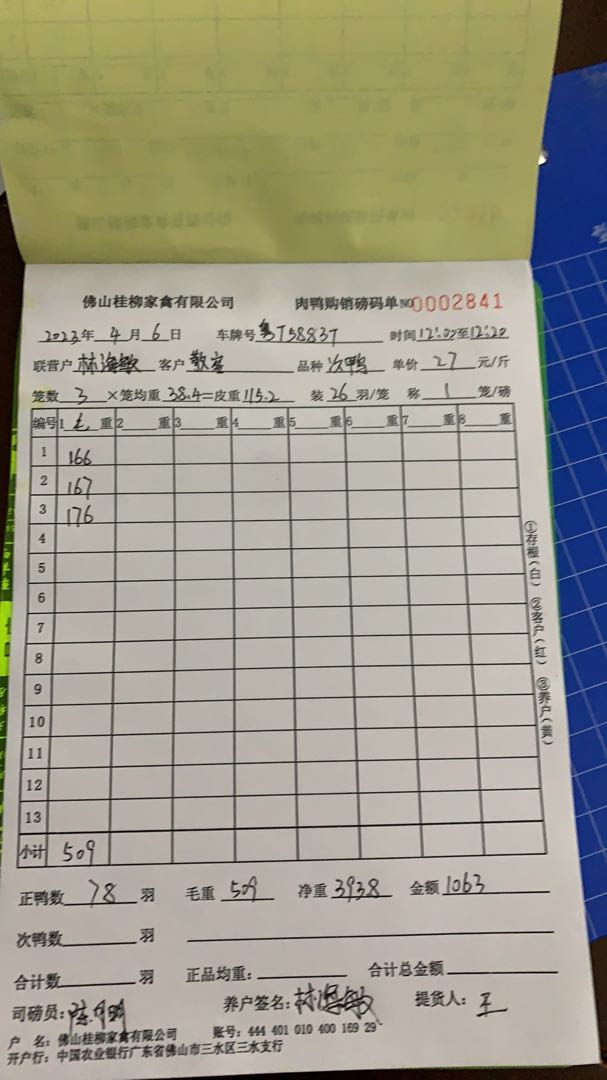 佛山桂柳家禽有限公司 肉鸭购销磅码单 NO 0002841
2023年 4 月 6 日 车牌号 粤T58837 时间 12:00至12:20
联营户 林海敏 客户 散客 品种 次鸭 单价 2.7 元/斤
笼数 3 ×笼均重 38.4=皮重 115.2 装 26 羽/笼 称 1 笼/磅
编号 1 毛 重 2 重 3 重 4 重 5 重 6 重 7 重 8 重
1 166
2 167
3 176
4
5
6
7
8
9
10
11
12
13
小计 509
①存根(白) ②客户(红) ③养户(黄)
正鸭数 78 羽 毛重 509 净重 393.8 金额 1063
次鸭数 羽
合计数 羽 正品均重: 合计总金额
司磅员: 养户签名: 林海敏 提货人: 王
户 名: 佛山桂柳家禽有限公司 账号: 444 401 010 400 169 29
开户行: 中国农业银行广东省佛山市三水区三水支行